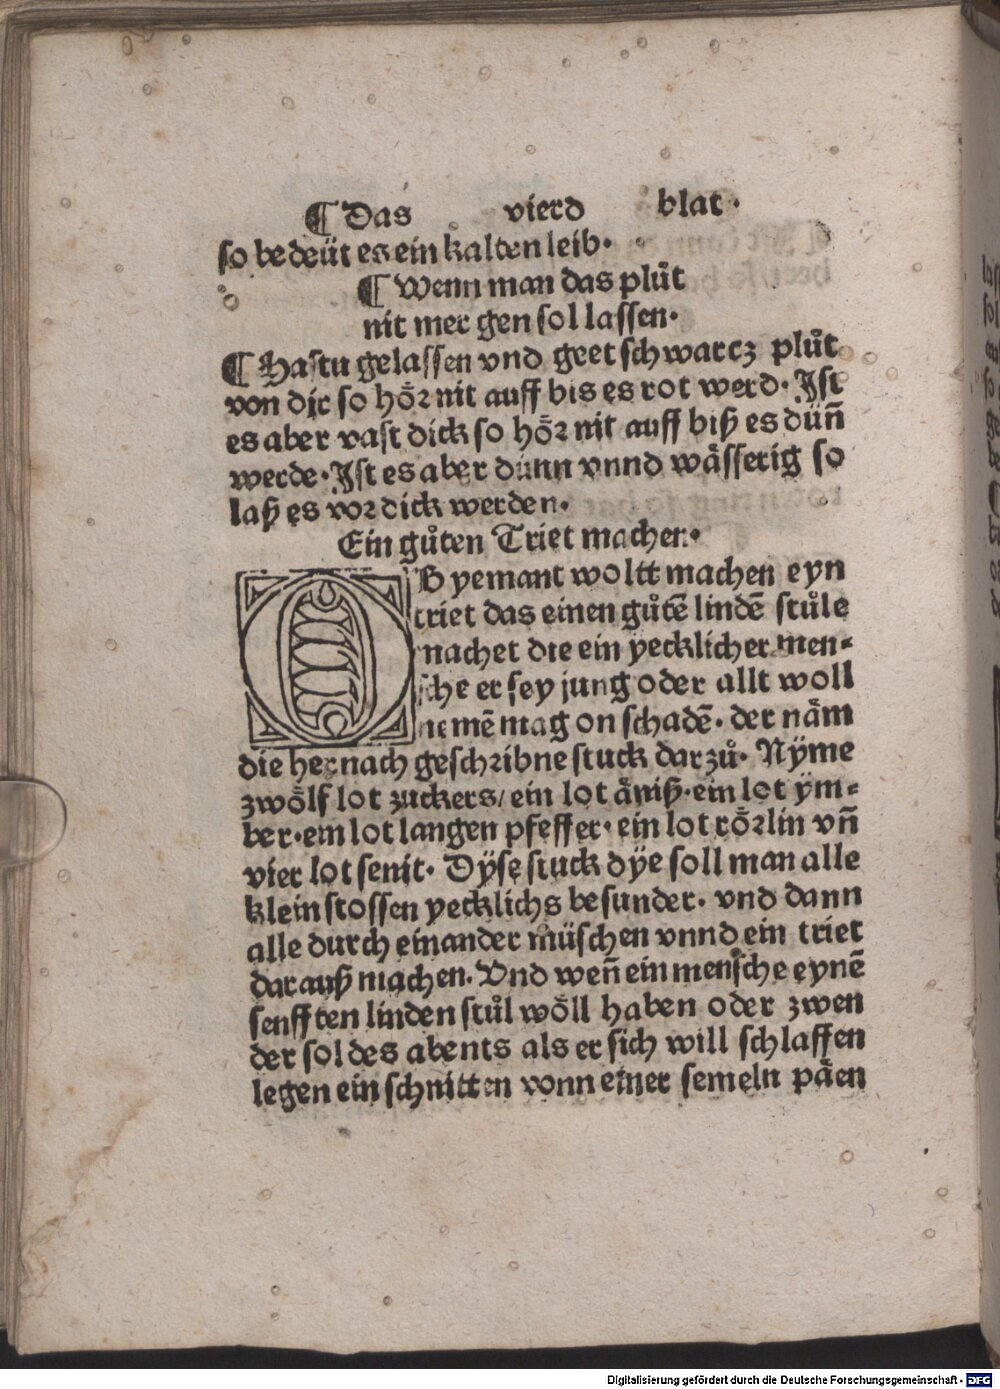 ¶ Das vierd blat.
so bedeüt es ein kalten leib.
¶ Wenn man das plůt
nit mer gen sol lassen.
¶ Hastu gelassen vnd geet schwarcz plůt
von dir so hoͤr nit auff bis es rot werd. Ist
es aber vast dick so hoͤr nit auff biß es dün̄
werde. Ist es aber dünn vnnd waͤsserig so
laß es vor dick werden.
Ein gůten Triet machen.
OB yemant woltt machen eyn
triet das einen gůtē lindē stůle
machet die ein yecklicher men-
sche er sey jung oder allt woll
nemē mag on schadē. der naͤm
die hernach geschribne stuck darzů. Nyͤme
zwoͤlf lot zuckers/ ein lot aͤniß. ein lot ym-
ber. ein lot langen pfeffer. ein lot roͤrlin vn̄
vier lot senit. Dÿse stuck dÿe soll man alle
klein stossen yecklichs besunder. vnd dann
alle durch einander müschen vnnd ein triet
darauß machen. Vnd wen̄ ein mensche eynē
senfften linden stůl woͤll haben oder zwen
der sol des abents als er sich will schlaffen
legen ein schnitten vonn einer semeln paͤen
Digitalisierung gefördert durch die Deutsche Forschungsgemeinschaft - DFG